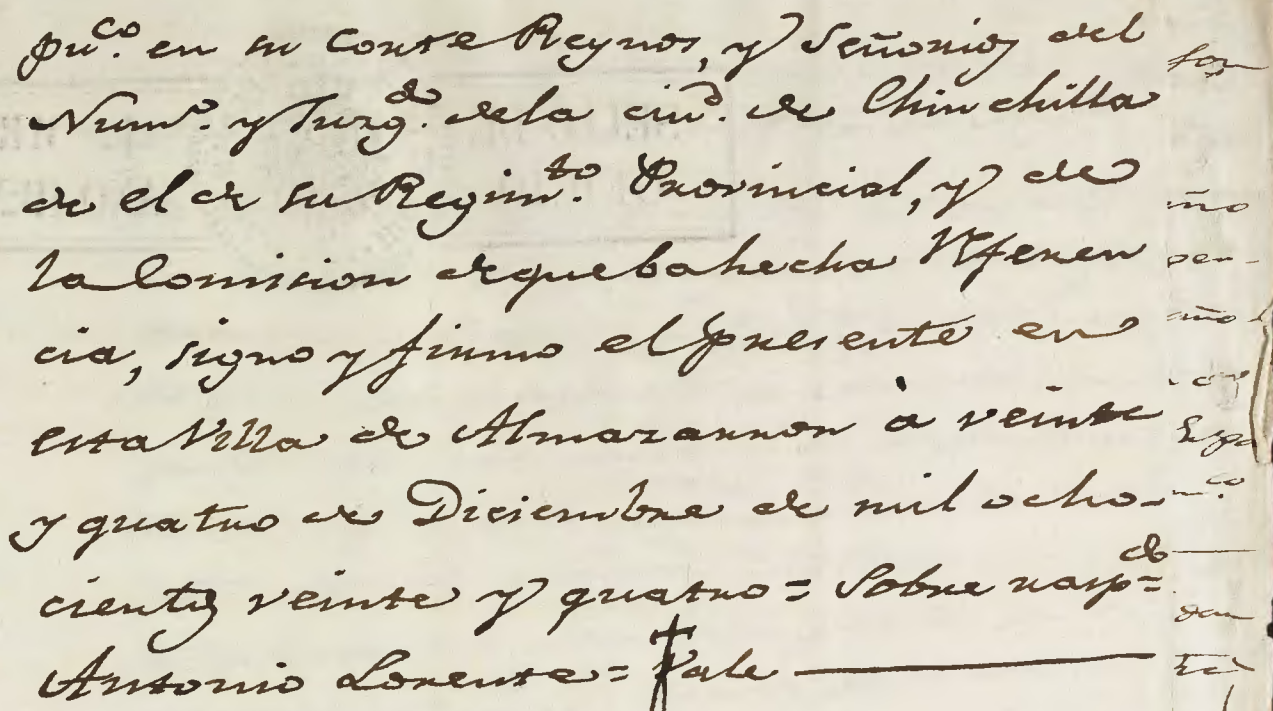 pu.co en su Corte Reynos, y Señorios del
Num.o y Juzg.do dela ciu.d de Chinchilla
de el de su Regim.to Provincial, y de
la Comision deque ba hecha referen
cia, signo y firmo el presente en
esta Villa de Almazarron à veinte
y quatro de Diciembre de mil ocho-
cientos veinte y quatro = Sobre rasp.do =
Antonio Lorente = Vale